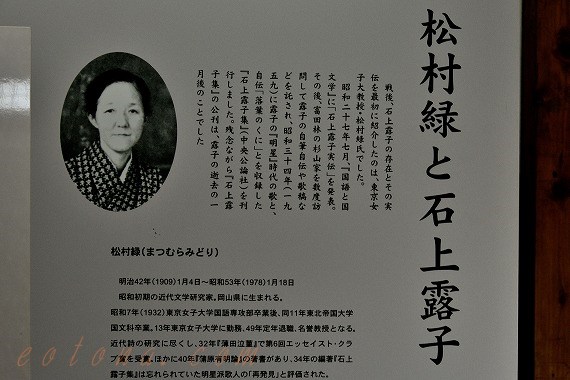 松村緑と石上露子
戦後、石上露子の存在とその実
伝を最初に紹介したのは、東京女
子大教授・松村緑氏でした。
昭和二十七年七月、『国語と国
文学』に「石上露子実伝」を発表。
その後、富田林の杉山家を数度訪
問して露子の自筆自伝や歌稿な
どを託され、昭和三十四年（一九
五九）に露子の『明星』時代の歌と、
自伝「落葉のくに」とを収録した
『石上露子集』（中央公論社）を刊
行しました。残念ながら『石上露
子集』の公刊は、露子の逝去の一
月後のことでした
松村緑（まつむらみどり）
明治42年（1909）1月4日～昭和53年（1978）1月18日
昭和初期の近代文学研究家。岡山県に生まれる。
昭和7年（1932）東京女子大学国語専攻部卒業後、同11年東北帝国大学
国文科卒業。13年東京女子大学に勤務、49年定年退職、名誉教授となる。
近代詩の研究に尽くし、32年『薄田泣菫』で第6回エッセイスト・クラ
ブ賞を受賞。ほかに40年『蒲原有明論』の著書があり、34年の編著『石上
露子集』は忘れられていた明星派歌人の「再発見」と評価された。